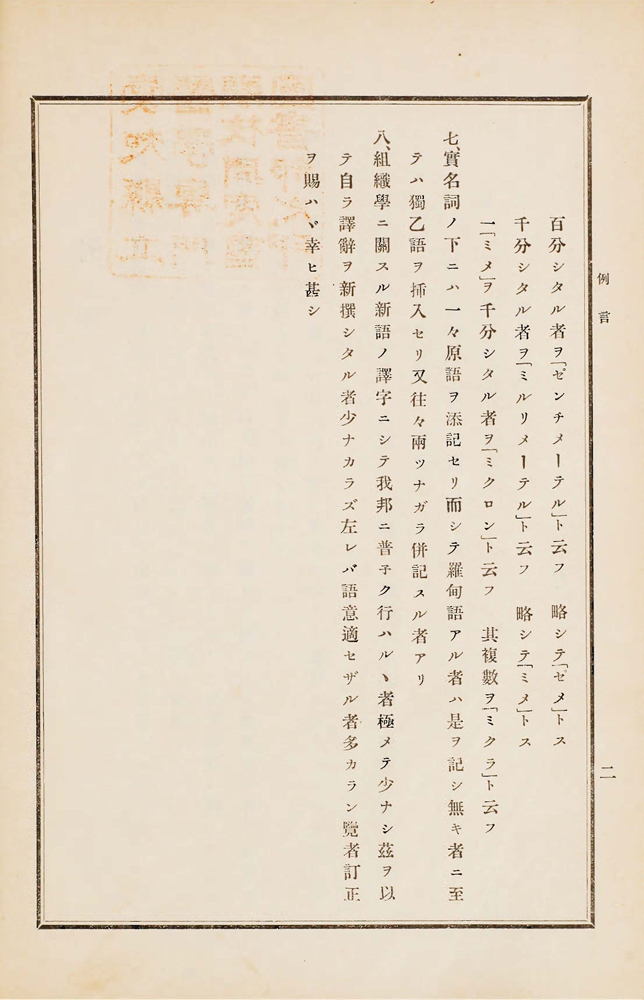 例言
二
百分シタル者ヲ「ゼンチメーテル」ト云フ 略シテ「ゼメ」トス
千分シタル者ヲ「ミルリメーテル」ト云フ 略シテ「ミメ」トス
一「ミメ」ヲ千分シタル者ヲ「ミクロン」ト云フ 其複數ヲ「ミクラ」ト云フ
七、實名詞ノ下ニハ一々原語ヲ添記セリ而シテ羅甸語アル者ハ是ヲ記シ無キ者ニ至
テハ獨乙語ヲ挿入セリ又往々兩ツナガラ併記スル者アリ
八、組織學ニ關スル新語ノ譯字ニシテ我邦ニ普子ク行ハルヽ者極メテ少ナシ茲ヲ以
テ自ラ譯辭ヲ新撰シタル者少ナカラズ左レバ語意適セザル者多カラン覽者訂正
ヲ賜ハヾ幸ヒ甚シ